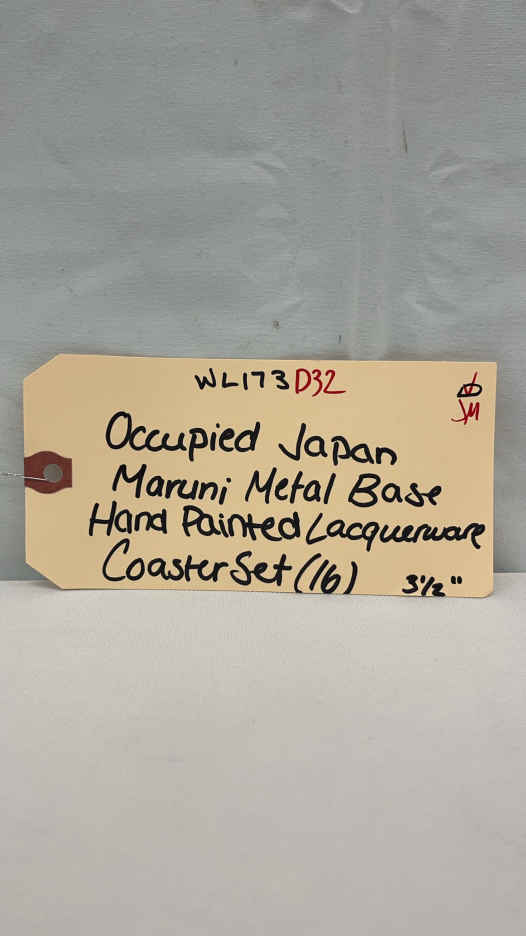 WL173 D32
JM
Occupied Japan
Maruni Metal Base
Hand Painted Lacquerware
Coaster Set (16) 3½"